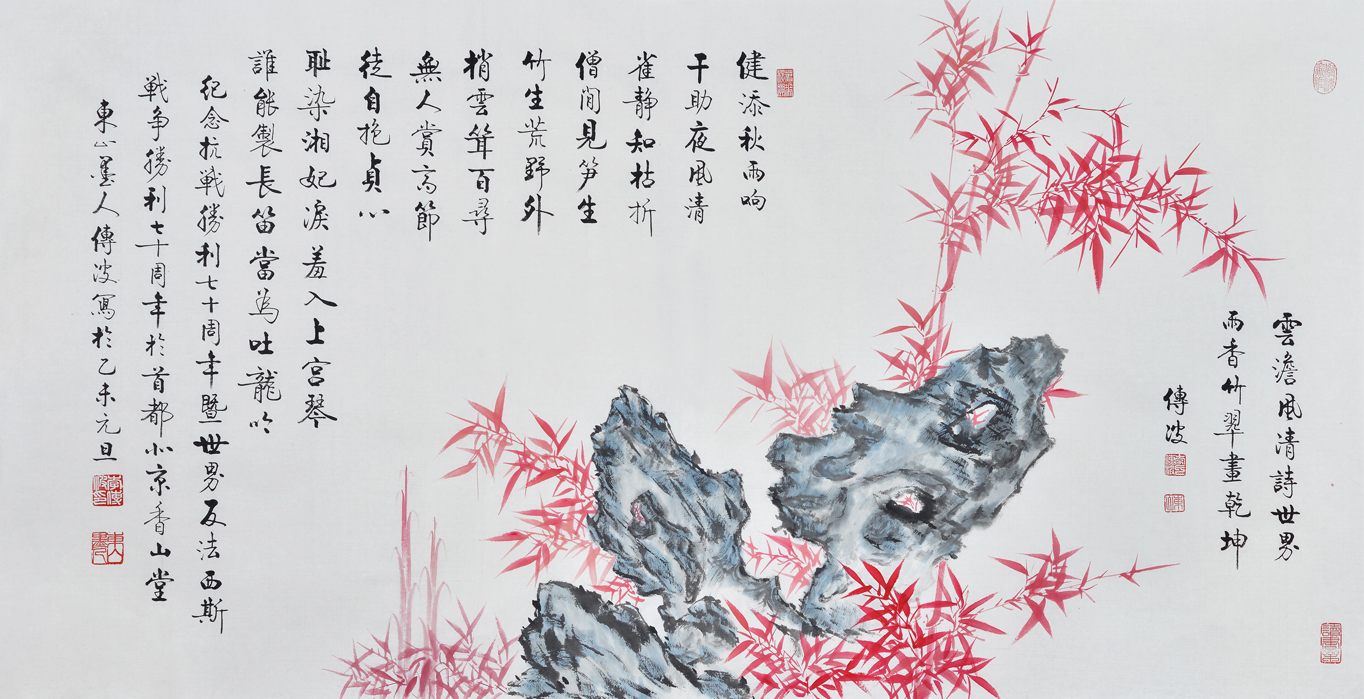 雲澹風清詩世界
雨香竹翠畫乾坤
傳波
健添秋雨响
干助夜風清
雀静知枯折
僧閒見笋生
竹生荒野外
梢雲聳百尋
無人賞高節
徒自抱貞心
耻染湘妃淚羞入上宮琴
誰能製長笛當為吐龍吟
紀念抗戰勝利七十周年暨世界反法西斯
戰争勝利七十周年於首都北京香山堂
東山墨人傳波寫於乙未元旦